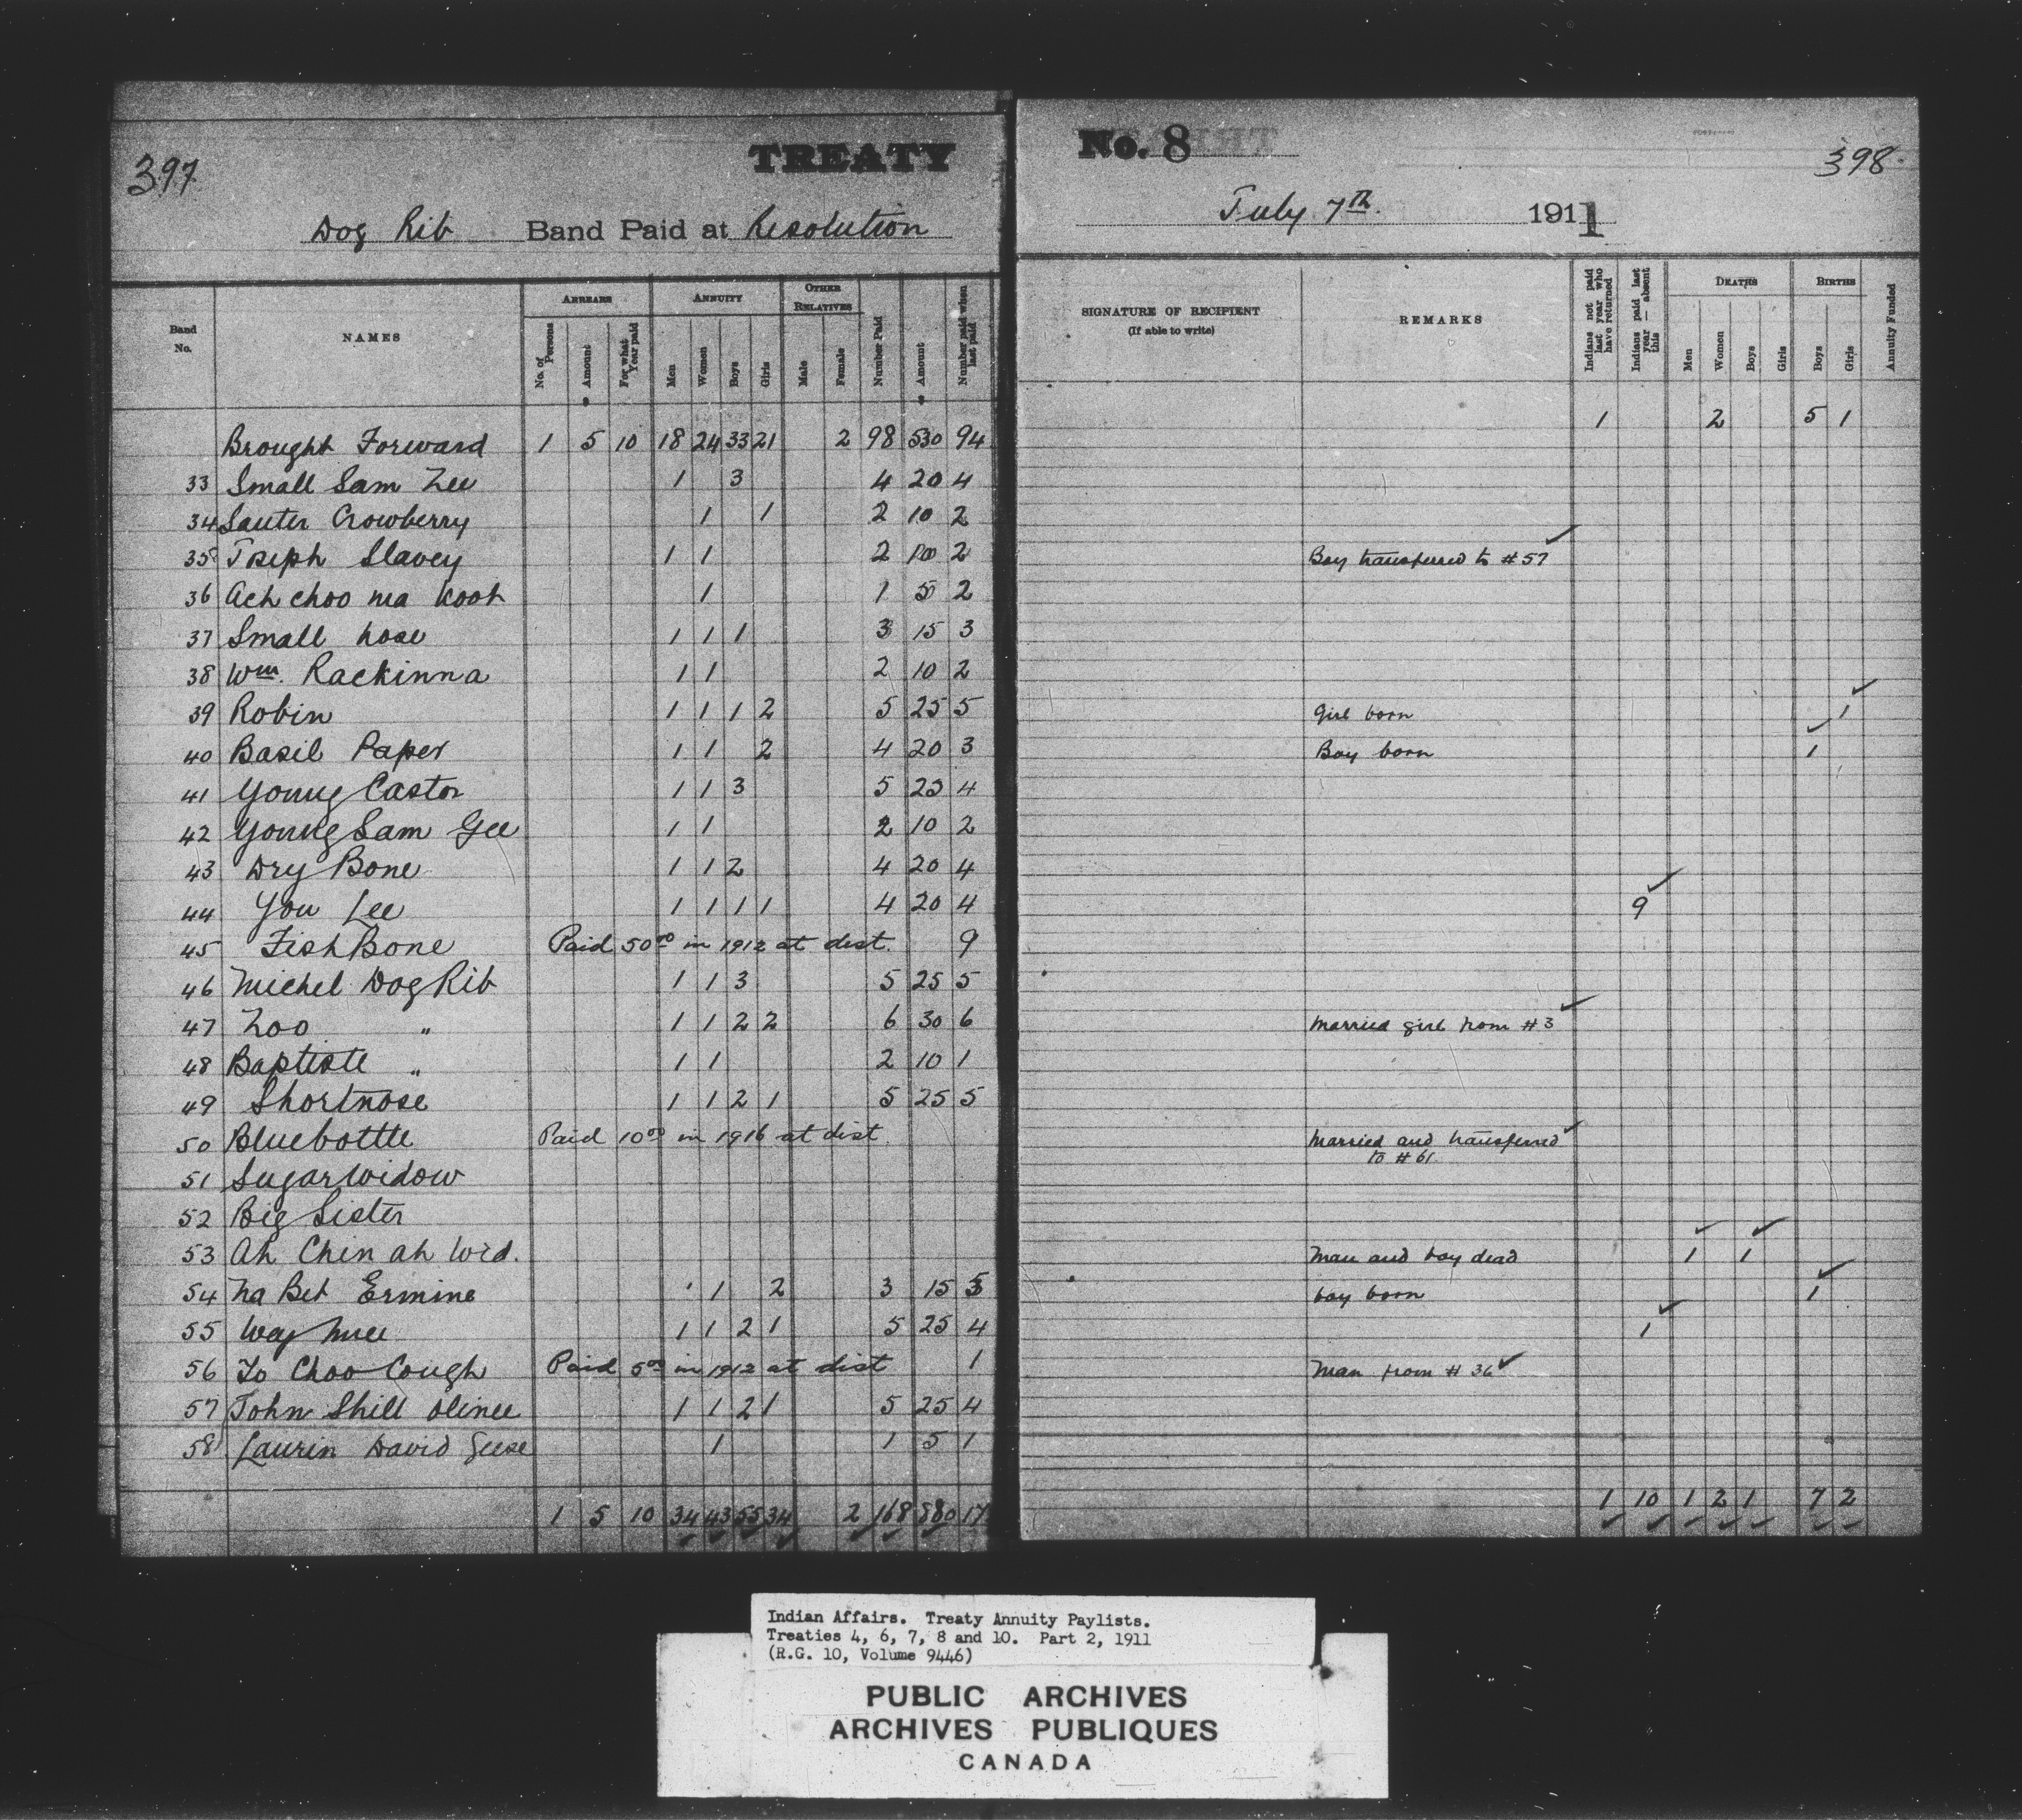 397
TREATY
Dog Rib Band Paid at Resolution
Band No. NAMES ARREARS No. of Persons Amount For what Year paid ANNUITY Men Women Boys Girls OTHER RELATIVES Male Female Number Paid Amount Number paid when last paid
Brought Forward 1 5 10 18 24 33 21 2 98 530 94
33 Small Sam Zee 1 3 4 20 4
34 Sauter Crowberry 1 1 2 10 2
35 Joseph Slavey 1 1 2 10 2
36 Ach choo ma Koot 1 1 5 2
37 Small nose 1 1 1 3 15 3
38 Wm. Rackinna 1 1 2 10 2
39 Robin 1 1 1 2 5 25 5
40 Basil Paper 1 1 2 4 20 3
41 Young Castor 1 1 3 5 25 4
42 Young Sam Gee 1 1 2 10 2
43 Dry Bone 1 1 2 4 20 4
44 You Lee 1 1 1 1 4 20 4
45 Fish Bone Paid 50 00 in 1912 at dist. 9
46 Michel Dog Rib 1 1 3 5 25 5
47 Zoo " 1 1 2 2 6 30 6
48 Baptiste " 1 1 2 10 1
49 Shortnose 1 1 2 1 5 25 5
50 Bluebottle Paid 10 00 in 1916 at dist.
51 Sugar Widow
52 Big Sister
53 Ah Chin ah Wid.
54 Na Bet Ermine 1 2 3 15 5
55 Way 1 1 2 1 5 25 4
56 To Choo Cough Paid 5 00 in 1912 at dist 1
57 John Shill olinee 1 1 2 1 5 25 4
58 Laurin David Geese 1 1 5 1
1 5 10 34 43 55 34 2 168 880 17
No. 8
398
July 7th. 1911
SIGNATURE OF RECIPIENT (If able to write) REMARKS Indians not paid last year who have returned Indians paid last year — absent this DEATHS Men Women Boys Girls BIRTHS Boys Girls Annuity Funded
1 2 5 1
Boy transferred to #57
Girl born 1
Boy born 1
9
Married girl from #3
Married and transferred
to #61
Man and boy dead 1 1
boy born 1
1
Man from #36
1 10 1 2 1 7 2
Indian Affairs. Treaty Annuity Paylists.
Treaties 4, 6, 7, 8 and 10. Part 2, 1911
(R.G. 10, Volume 9446)
PUBLIC ARCHIVES
ARCHIVES PUBLIQUES
CANADA